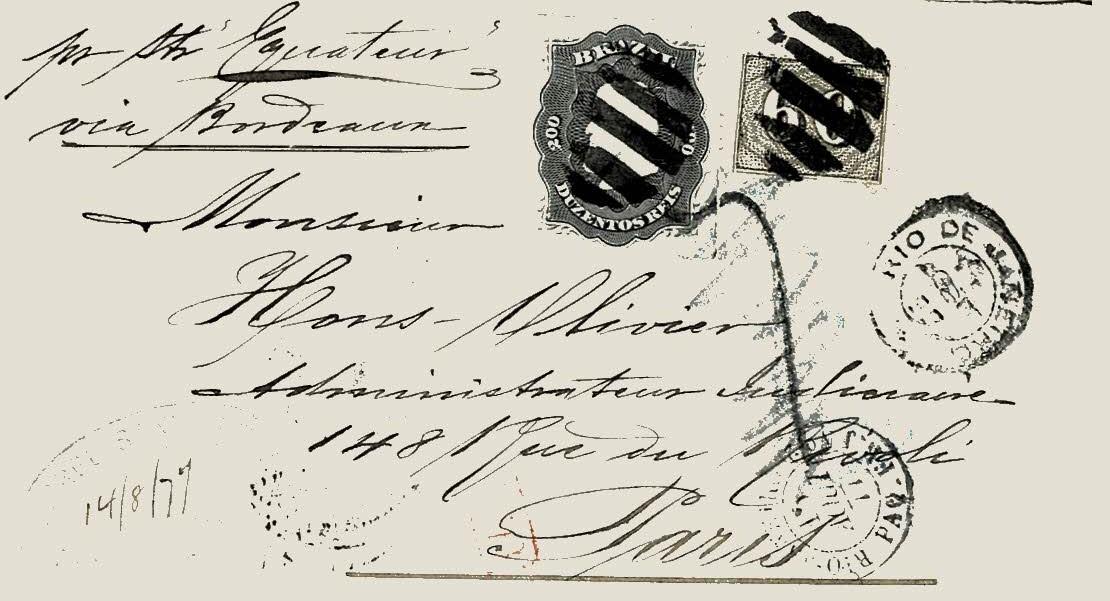 pr Str "Equateur"
via Bordeaux
BRAZIL
200
DUZENTOS REIS
60
RIO DE JANEIRO
Monsieur
Hons-Olivier
Administrateur Judiciaire
148 Rue du Rivoli
Paris
14/8/77